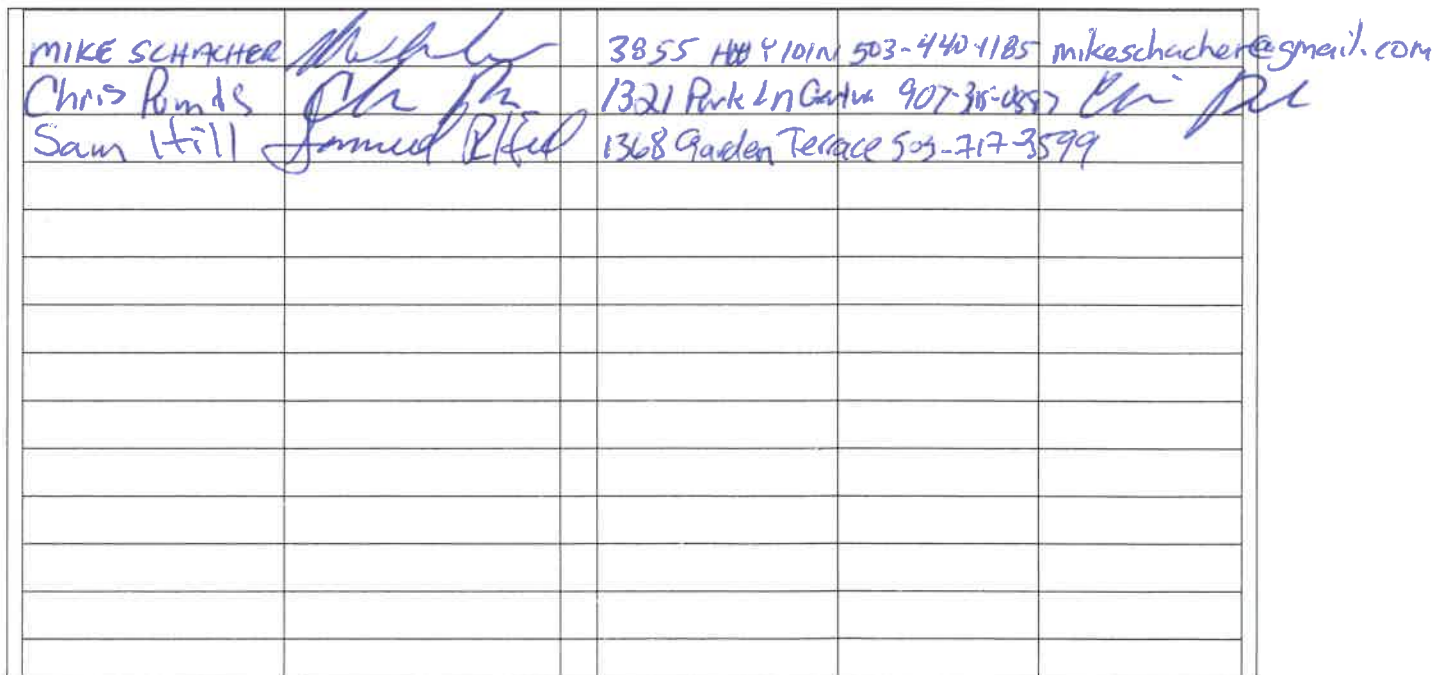 MIKE SCHACHER 3855 HWY 101N 503-440-1185 mikeschacher@gmail.com
Chris Pounds 1321 Park Ln
Sam Hill Samuel R Hill 1368 Garden Terrace 503-717-3599